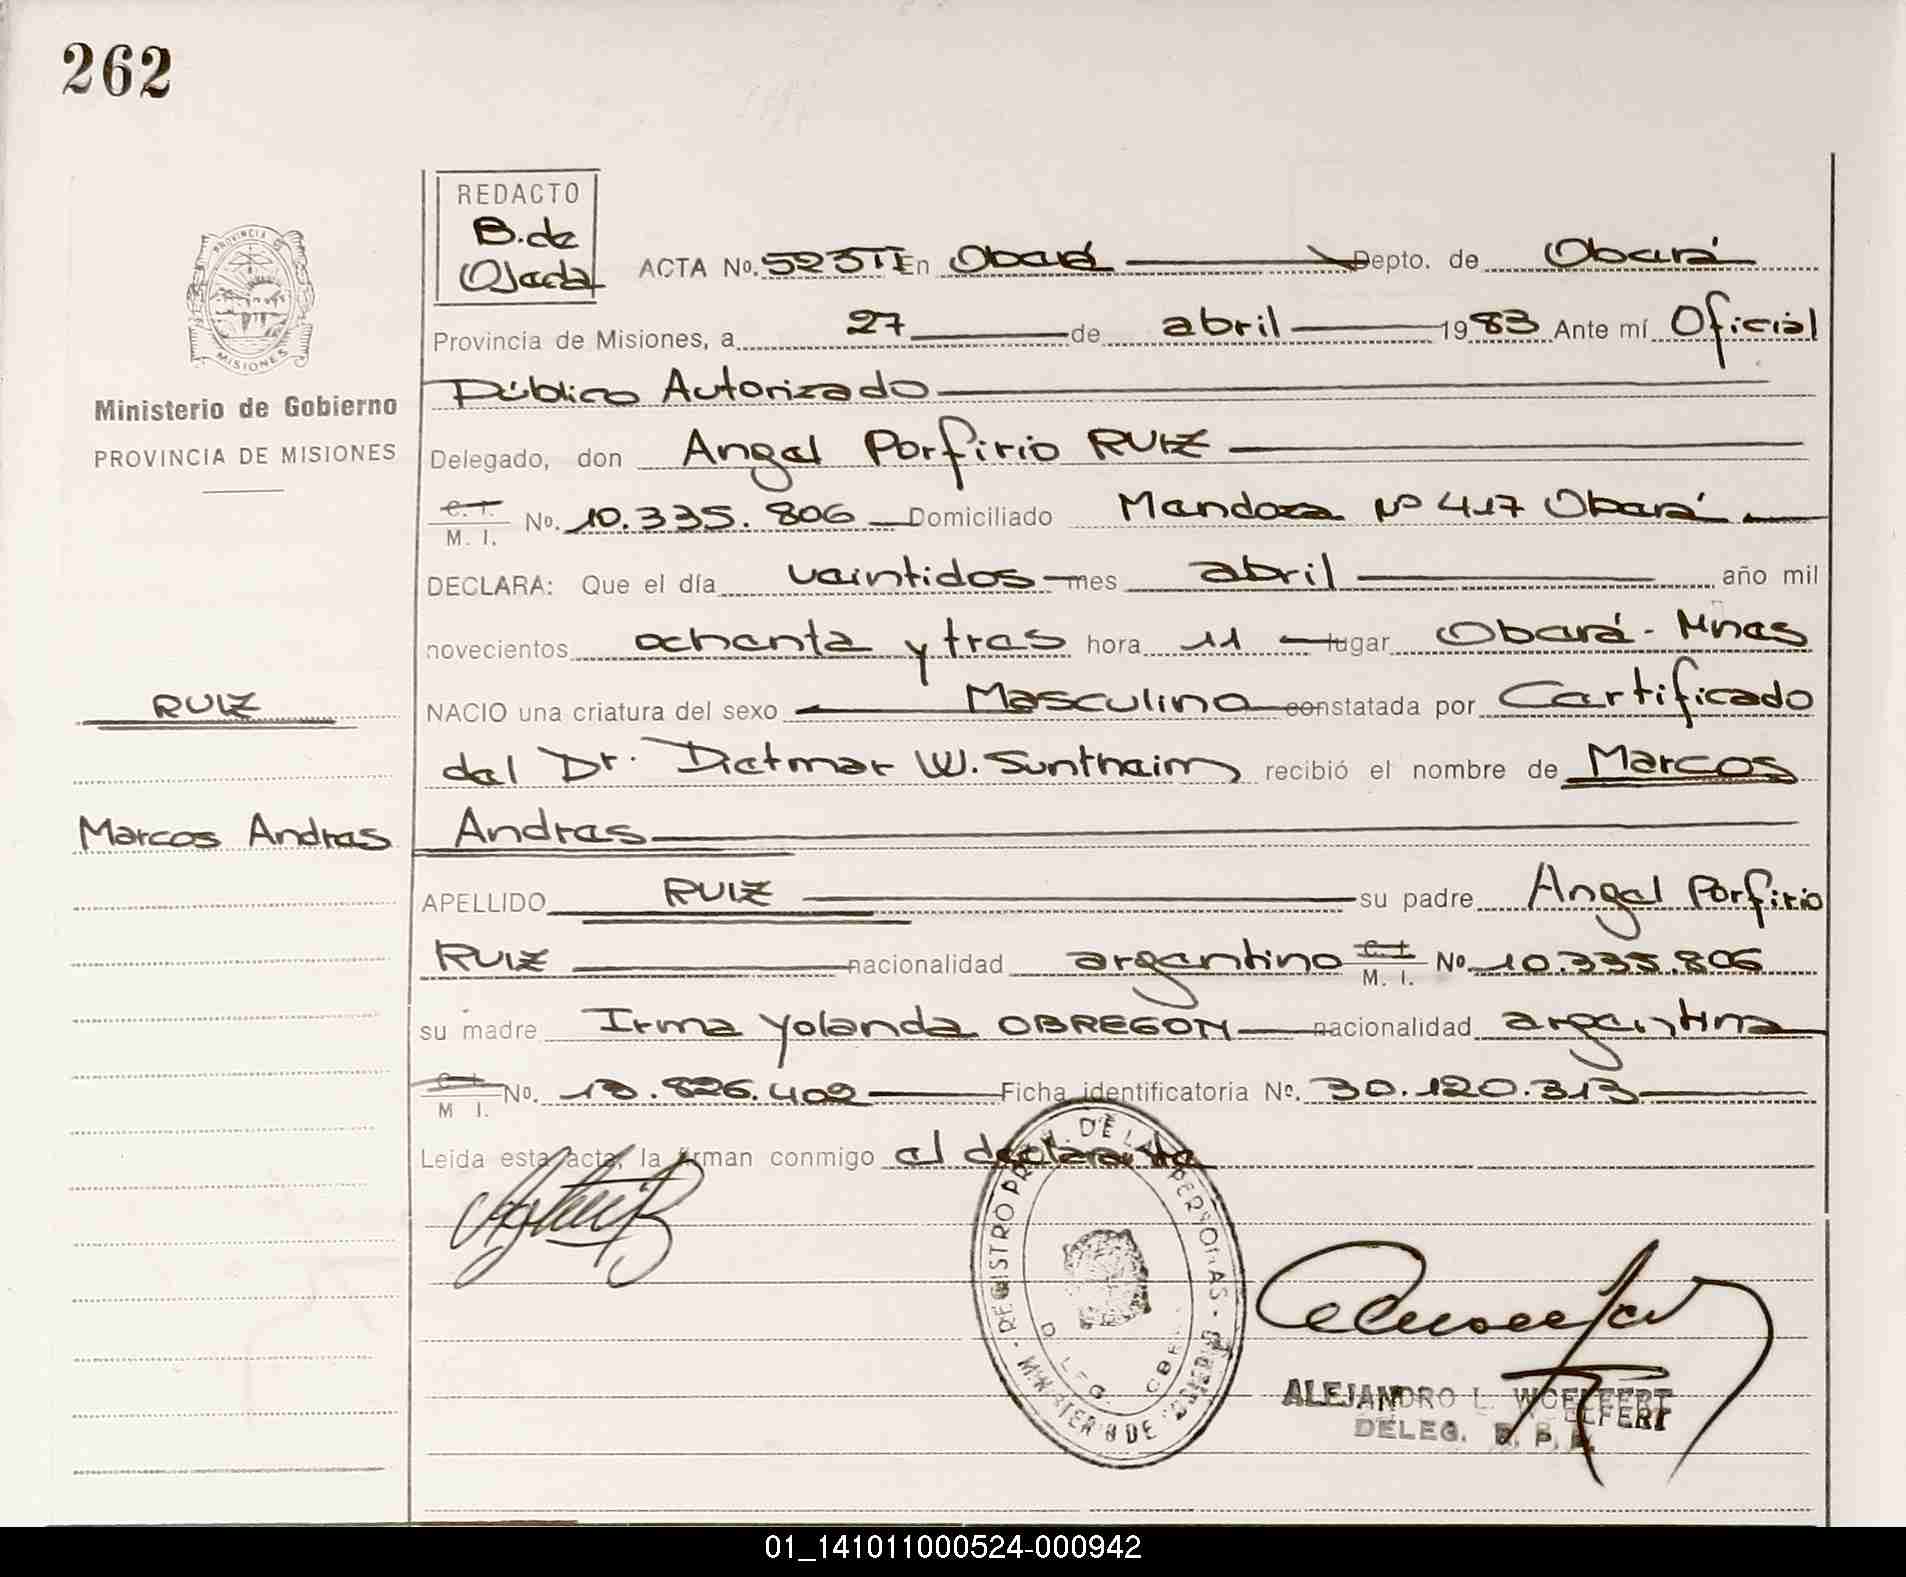 262
REDACTO
B. de
Ojeda
ACTA No. 523TI En Oberá Depto. de Oberá
Provincia de Misiones, a 27 de abril 1983 Ante mí Oficial
Público Autorizado
Ministerio de Gobierno
PROVINCIA DE MISIONES
Delegado, don Angel Porfirio RUIZ
C. I.
M. I. No. 10.335.806 Domiciliado Mendoza Nº 417 Oberá
DECLARA: Que el día veintidos mes abril año mil
novecientos ochenta y tres hora 11 lugar Oberá - Mnes
RUIZ
NACIO una criatura del sexo Masculino constatada por Certificado
del Dr. Dietmar W. Suntheim recibió el nombre de Marcos
Marcos Andres
Andres
APELLIDO RUIZ su padre Angel Porfirio
RUIZ nacionalidad argentino C. I. M. I. Nº 10.335.806
su madre Irma Yolanda OBREGON nacionalidad argentina
C. I.
M I. No. 13.826.402 Ficha identificatoria Nº. 30.120.313
Leída esta acta, la firman conmigo el declarante
REGISTRO PROV. DE LAS PERSONAS
MINISTERIO DE GOBIERNO
ALEJANDRO L. WOELFERT
DELEG.
01_141011000524-000942